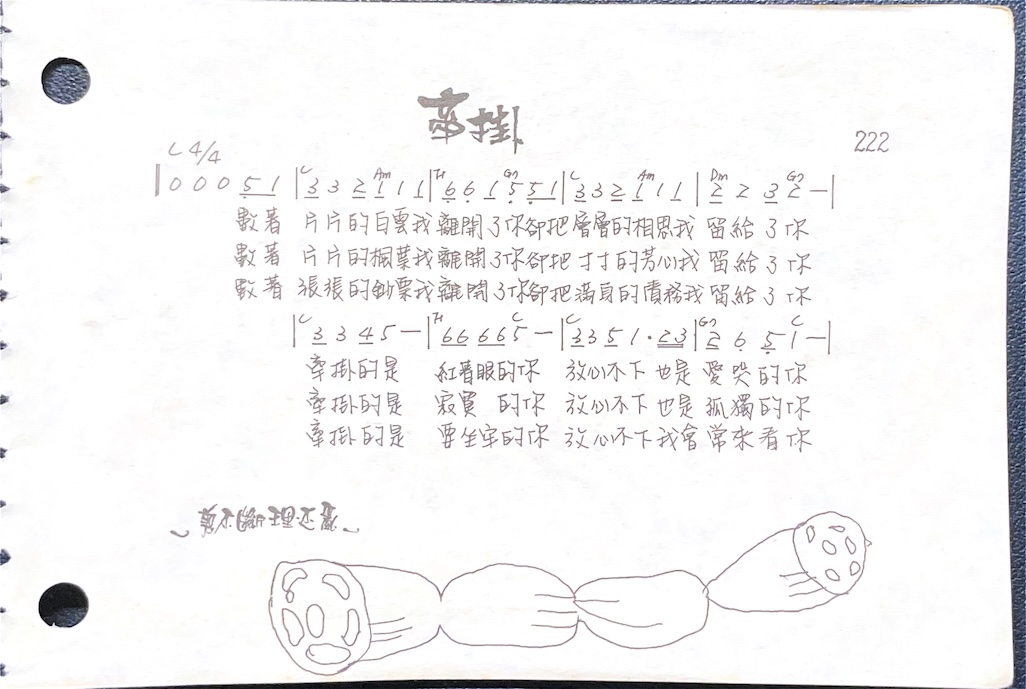 牽掛
222
C 4/4
| 0 0 0 5 1 | 3 3 2 1 1 1 | 6 6 1 5 5 1 | 3 3 2 1 1 1 | 2 2 3 2 — |
數著 片片的白雲我離開了你卻把層層的相思我 留給了你
數著 片片的楓葉我離開了你卻把寸寸的芳心我 留給了你
數著 張張的鈔票我離開了你卻把滿身的債務我 留給了你
| 3 3 4 5 — | 6 6 6 6 5 — | 3 3 5 1 · 2 3 | 2 6 5 1 — |
牽掛的是 紅著眼的你 放心不下 也是 愛哭的你
牽掛的是 寂寞 的你 放心不下 也是 孤獨的你
牽掛的是 要坐牢的你 放心不下我會 常來看你
剪不斷理還亂